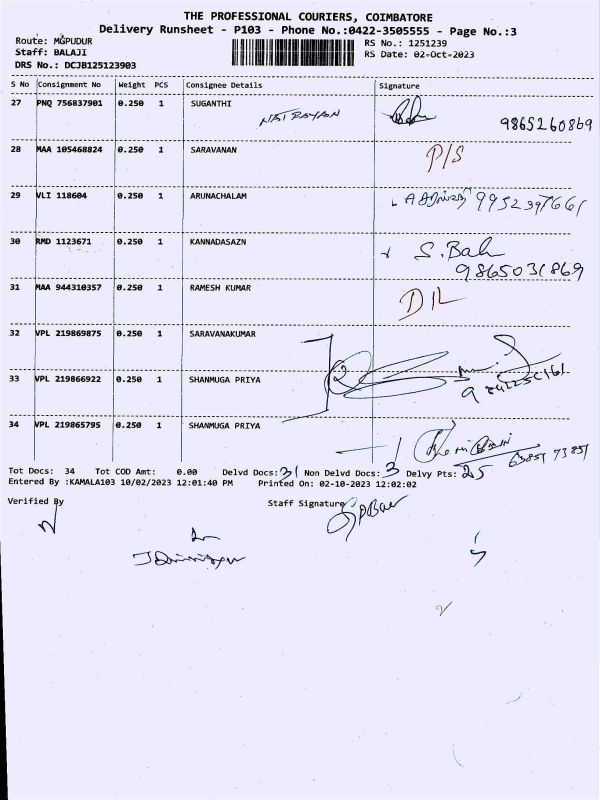 THE PROFESSIONAL COURIERS, COIMBATORE
Delivery Runsheet - P103 - Phone No.:0422-3505555 - Page No.:3
Route: MGPUDUR
RS No.: 1251239
Staff: BALAJI
RS Date: 02-Oct-2023
DRS No.: DCJB125123903
S No Consignment No Weight PCS Consignee Details Signature
27 PNQ 756837901 0.250 1 SUGANTHI
NATRAYAN 9865260869
28 MAA 105468824 0.250 1 SARAVANAN P/S
29 VLI 118604 0.250 1 ARUNACHALAM 9952397661
30 RMD 1123671 0.250 1 KANNADASAZN S.Bah
9865031869
31 MAA 944310357 0.250 1 RAMESH KUMAR D/L
32 VPL 219869875 0.250 1 SARAVANAKUMAR
33 VPL 219866922 0.250 1 SHANMUGA PRIYA
34 VPL 219865795 0.250 1 SHANMUGA PRIYA
63851 73851
Tot Docs: 34 Tot COD Amt: 0.00 Delvd Docs: 31 Non Delvd Docs: 3 Delvy Pts: 25
Entered By :KAMALA103 10/02/2023 12:01:40 PM Printed On: 02-10-2023 12:02:02
Verified By Staff Signature